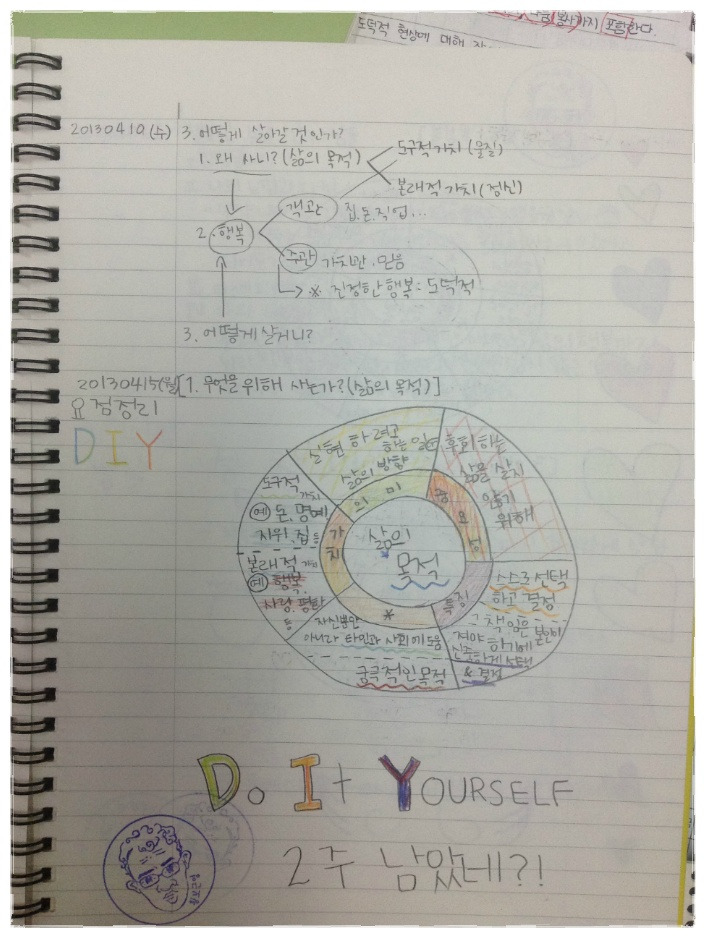 포함한다.
도덕적 현상에 대해
20130410(수)
3. 어떻게 살아갈 것인가?
1. 왜 사니? (삶의 목적)
도구적 가치 (물질)
본래적 가치 (정신)
객관 집.돈.직업...
2. 행복
주관 가치관.믿음
※ 진정한 행복: 도덕적
3. 어떻게 살거니?
20130415(월) [1. 무엇을 위해 사는가? (삶의 목적)]
요점정리
DIY
실현하려고
하는 일
삶의 방향
의미
후회하는
삶을 살지
않기
위해
중요성
도구적 가치
예 돈.명예
지위.집 등
본래적 가치
예 행복.
사랑.평화
등
가치
삶의
목적
특징
스스로 선택
하고 결정
책임은 본인이
져야 하기에
신중하게 선택
& 결정
*
자신뿐만
아니라 타인과 사회에 도움
궁극적인 목적
Do It YOURSELF
2주 남았네?!